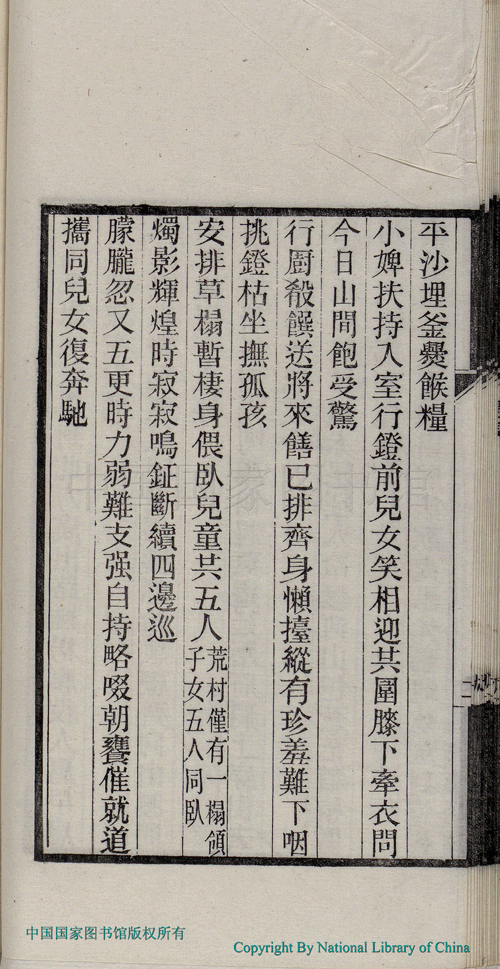 平沙埋釜爨餱糧
小婢扶持入室行鐙前兒女笑相迎共圍膝下牽衣問
今日山間飽受驚
行厨殽饌送將來饍已排齊身懶擡縱有珍羞難下咽
挑鐙枯坐撫孤孩
安排草榻暫棲身偎臥兒童共五人荒村僅有一榻領子女五人同臥
燭影輝煌時寂寂鳴鉦斷續四邊巡
朦朧忽又五更時力弱難支强自持略啜朝饔催就道
攜同兒女復奔馳
中国国家图书馆版权所有
Copyright By National Library of China